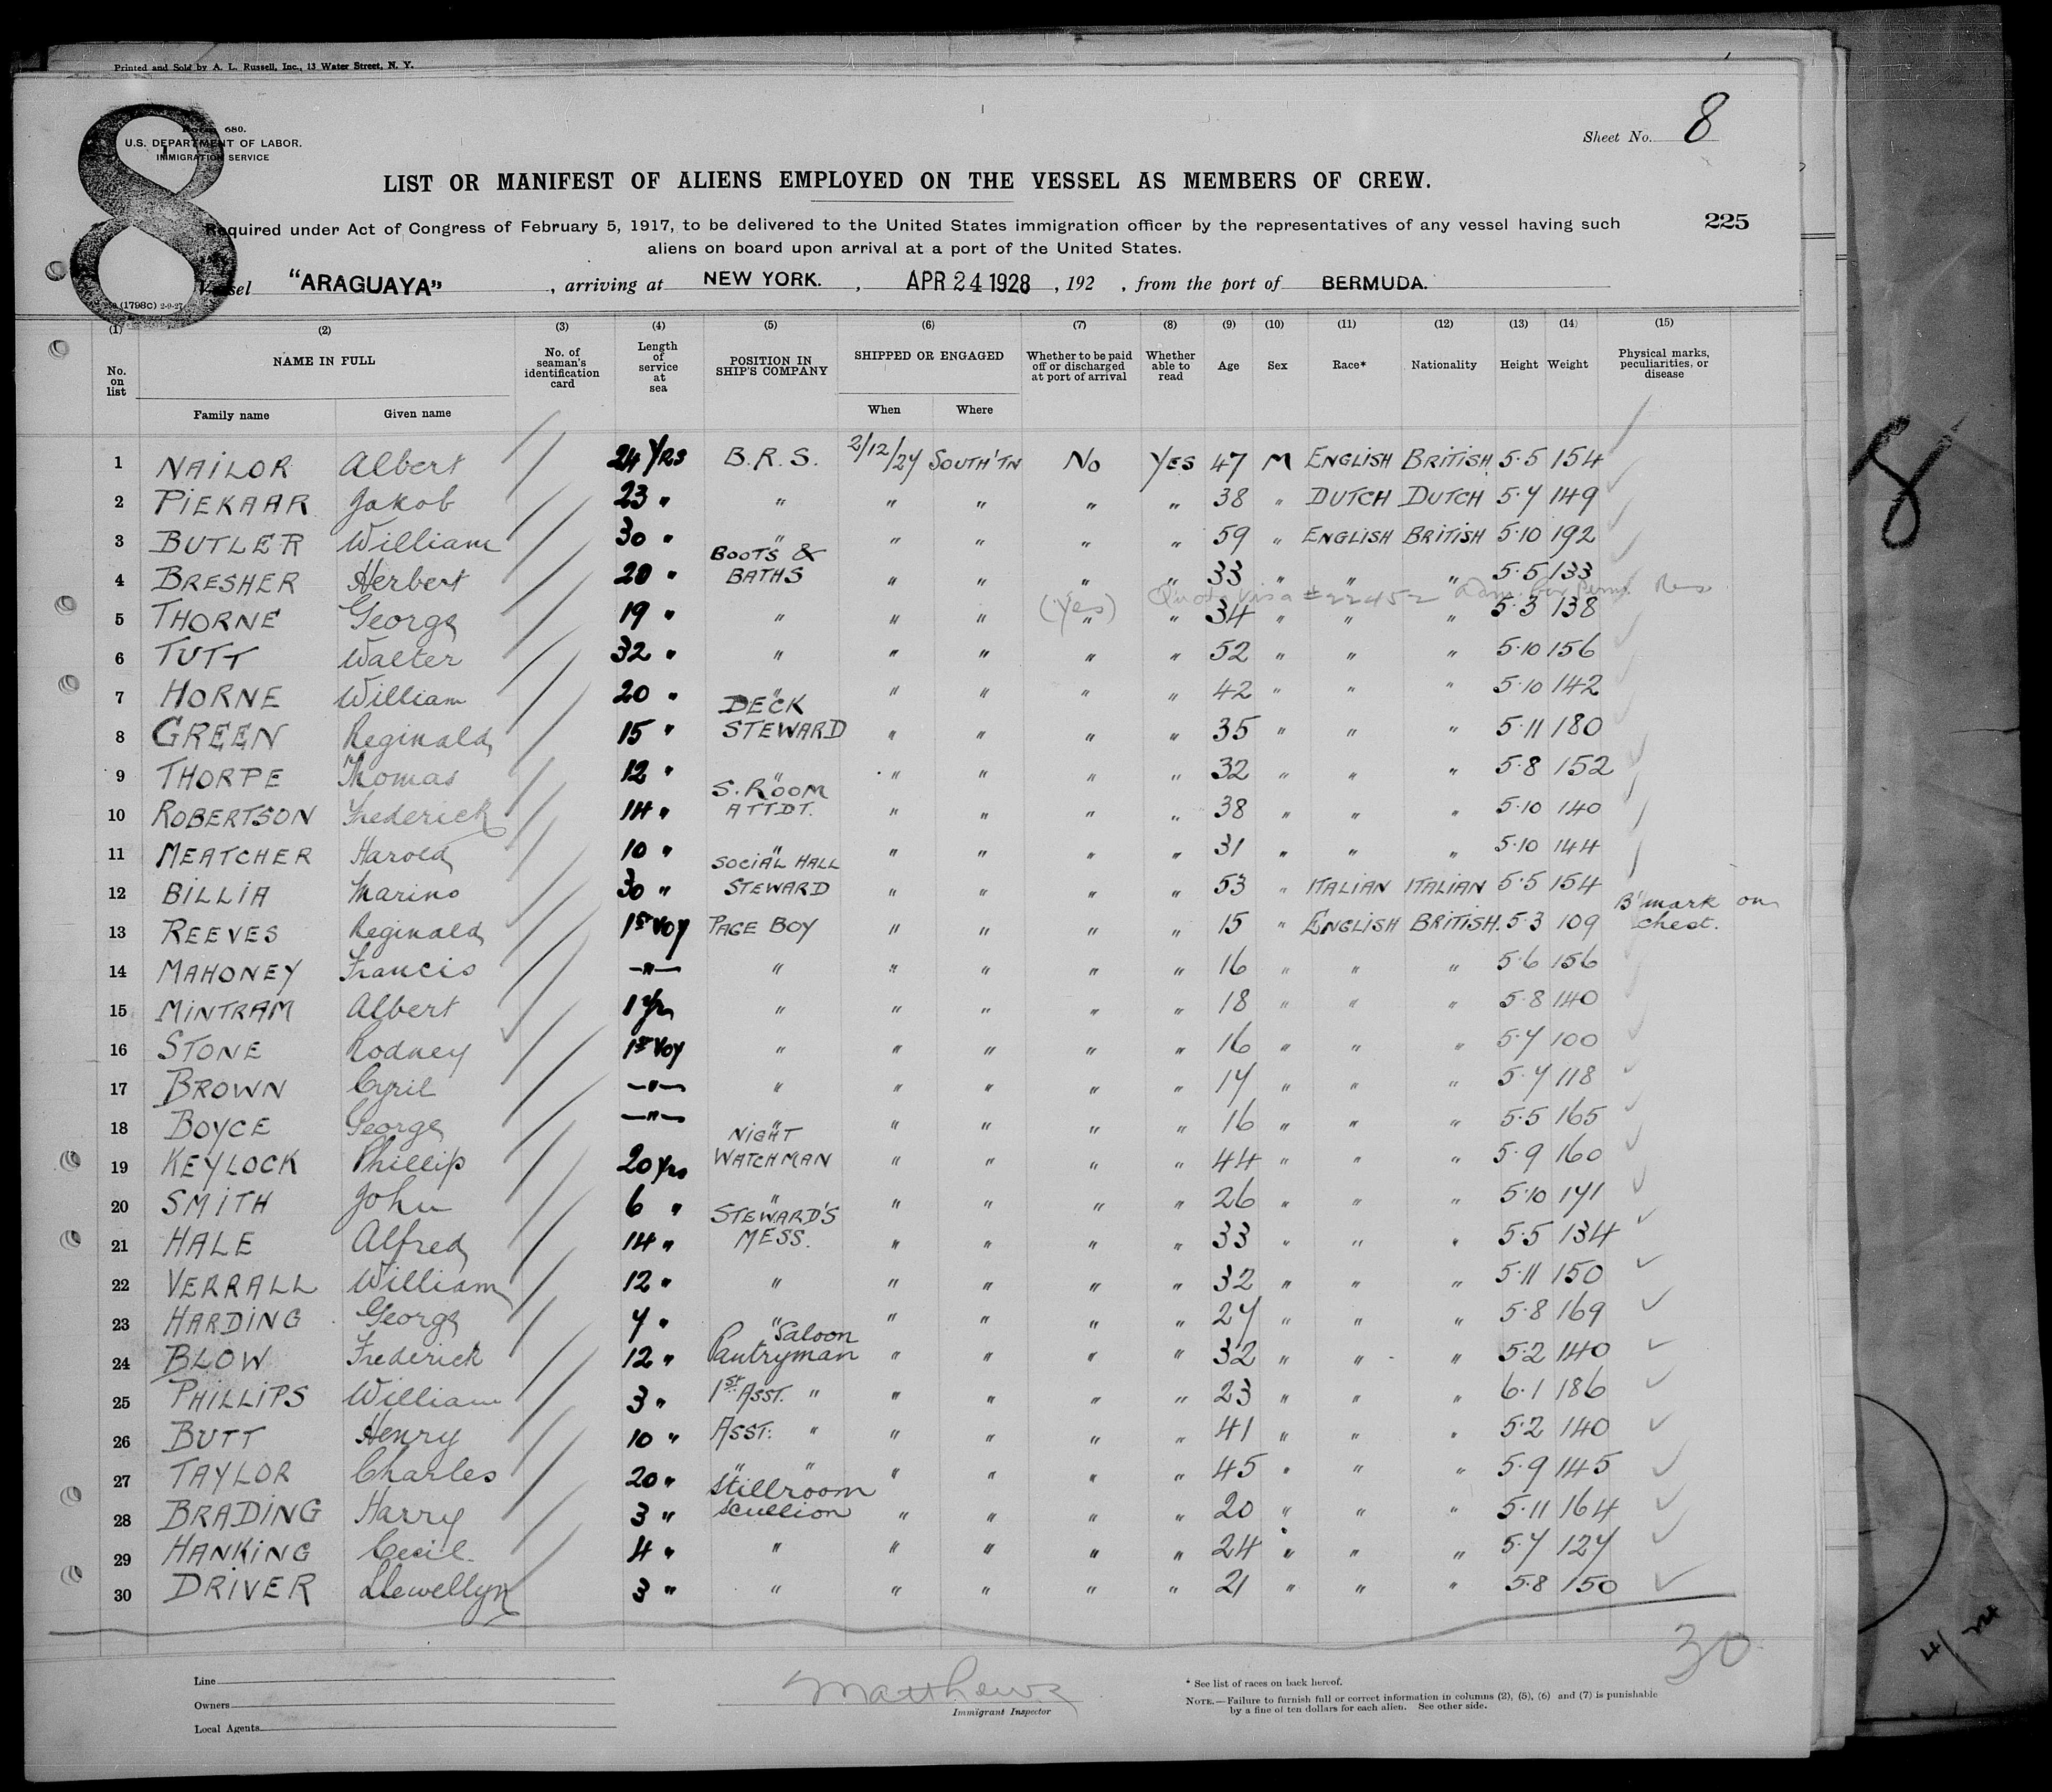 Printed and Sold by A. L. Russell, Inc., 13 Water Street, N. Y.
8
680.
U.S. DEPARTMENT OF LABOR.
IMMIGRATION SERVICE
Sheet No. 8
LIST OR MANIFEST OF ALIENS EMPLOYED ON THE VESSEL AS MEMBERS OF CREW.
Required under Act of Congress of February 5, 1917, to be delivered to the United States immigration officer by the representatives of any vessel having such
aliens on board upon arrival at a port of the United States.
225
Vessel "ARAGUAYA" , arriving at NEW YORK. , APR 24 1928 , 192 , from the port of BERMUDA.
(1798c) 2-9-27
(1) (2) (3) (4) (5) (6) (7) (8) (9) (10) (11) (12) (13) (14) (15)
No. on list NAME IN FULL No. of seaman's identification card Length of service at sea POSITION IN SHIP'S COMPANY SHIPPED OR ENGAGED Whether to be paid off or discharged at port of arrival Whether able to read Age Sex Race* Nationality Height Weight Physical marks, peculiarities, or disease
Family name Given name When Where
1 NAILOR Albert 24 Yrs B.R.S. 2/12/27 SOUTH'TN No Yes 47 M ENGLISH BRITISH 5·5 154
2 PIEKAAR Jakob 23 " " " " " " 38 " DUTCH DUTCH 5·7 149
3 BUTLER William 30 " " " " " " 59 " ENGLISH BRITISH 5·10 192
4 BRESHER Herbert 20 " BOOTS & BATHS " " " " 33 " " " 5·5 133
Quota Visa # 22452 Adm. for Perm. Res
5 THORNE George 19 " " " " (Yes) " " 34 " " " 5·3 138
6 TUTT Walter 32 " " " " " " 52 " " " 5·10 156
7 HORNE William 20 " " " " " " 42 " " " 5·10 142
8 GREEN Reginald 15 " DECK STEWARD " " " " 35 " " " 5·11 180
9 THORPE Thomas 12 " " " " " " 32 " " " 5·8 152
10 ROBERTSON Frederick 14 " S. ROOM ATTDT. " " " " 38 " " " 5·10 140
11 MEATCHER Harold 10 " " " " " " 31 " " " 5·10 144
12 BILLIA Marino 30 " SOCIAL HALL STEWARD " " " " 53 " ITALIAN ITALIAN 5·5 154
13 REEVES Reginald 1st Voy PAGE BOY " " " " 15 " ENGLISH BRITISH. 5·3 109 B'mark on chest.
14 MAHONEY Francis —"— " " " " " 16 " " " 5·6 156
15 MINTRAM Albert 1 Yr " " " " " 18 " " " 5·8 140
16 STONE Rodney 1st Voy " " " " " 16 " " " 5·7 100
17 BROWN Cyril —"— " " " " " 17 " " " 5·7 118
18 BOYCE George —"— " " " " " 16 " " " 5·5 165
19 KEYLOCK Phillip 20 Yrs NIGHT WATCHMAN " " " " 44 " " " 5·9 160
20 SMITH John 6 " " " " " " 26 " " " 5·10 171
21 HALE Alfred 14 " STEWARD'S MESS. " " " " 33 " " " 5·5 134
22 VERRALL William 12 " " " " " " 32 " " " 5·11 150
23 HARDING George 7 " " " " " " 27 " " " 5·8 169
24 BLOW Frederick 12 " Saloon Pantryman " " " " 32 " " " 5·2 140
25 PHILLIPS William 3 " 1st Asst. " " " " " 23 " " " 6·1 186
26 BUTT Henry 10 " Asst: " " " " " 41 " " " 5·2 140
27 TAYLOR Charles 20 " " " " " " " 45 " " " 5·9 145
28 BRADING Harry 3 " Stillroom Scullion " " " " 20 " " " 5·11 164
29 HANKING Cecil. 4 " " " " " " 24 " " " 5·7 127
30 DRIVER Llewellyn 3 " " " " " " 21 " " " 5·8 150
30
Line
Owners
Local Agents
Matthews
Immigrant Inspector
* See list of races on back hereof.
NOTE.—Failure to furnish full or correct information in columns (2), (5), (6) and (7) is punishable
by a fine of ten dollars for each alien. See other side.
8